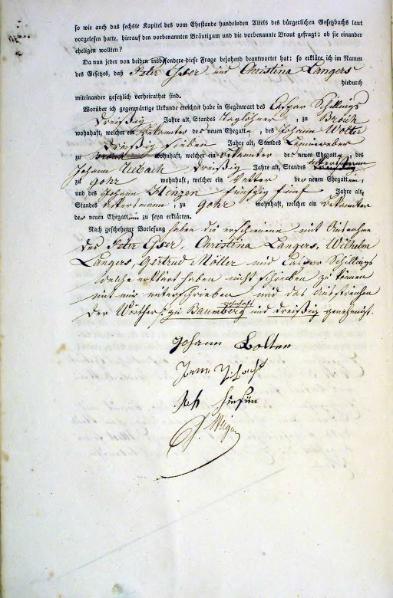 so wie auch das sechste Kapitel des vom Ehestande handelnden Titels des bürgerlichen Gesetzbuchs laut
vorgelesen hatte, hierauf den vorbenannten Bräutigam und die vorbenannte Braut gefragt: ob sie einander
ehelichen wollten?
Da nun jeder von beiden insbesondere diese Frage bejahend beantwortet hat; so erkläre ich im Namen
des Gesetzes, daß Peter Esser und Christina Langers
hiedurch
miteinander gesetzlich verheirathet sind.
Worüber ich gegenwärtige Urkunde errichtet habe in Gegenwart des Caspar Schillings
dreißig Jahre alt, Standes Taglöhner, zu Broich
wohnhaft, welcher ein Bekannter des neuen Ehegatten, des Johann Wolter
dreißig sieben Jahre alt, Standes Leineweber
zu wohnhaft, welcher ein Bekannter des neuen Ehegatten, des
Johann dreißig Jahre alt, Standes Ackersmann
zu Gohr wohnhaft, welcher ein Vetter des neuen Ehegatten,
und des Johann fünfzig fünf Jahre alt,
Standes Ackersmann, zu Gohr wohnhaft, welcher ein Bekannter
des neuen Ehegatten zu seyn erklären.
Nach geschehener Vorlesung haben die erschienene mit Ausnahme
des Peter Esser, Christina Langers, Wilhelm
Langers, Gertrud Möller und Caspar Schillings
welche erklärt haben nicht schreiben zu können
mit mir unterschrieben und das Ausstreichen
der Wörther zu und dreißig genehmigt.
Johann Wolter